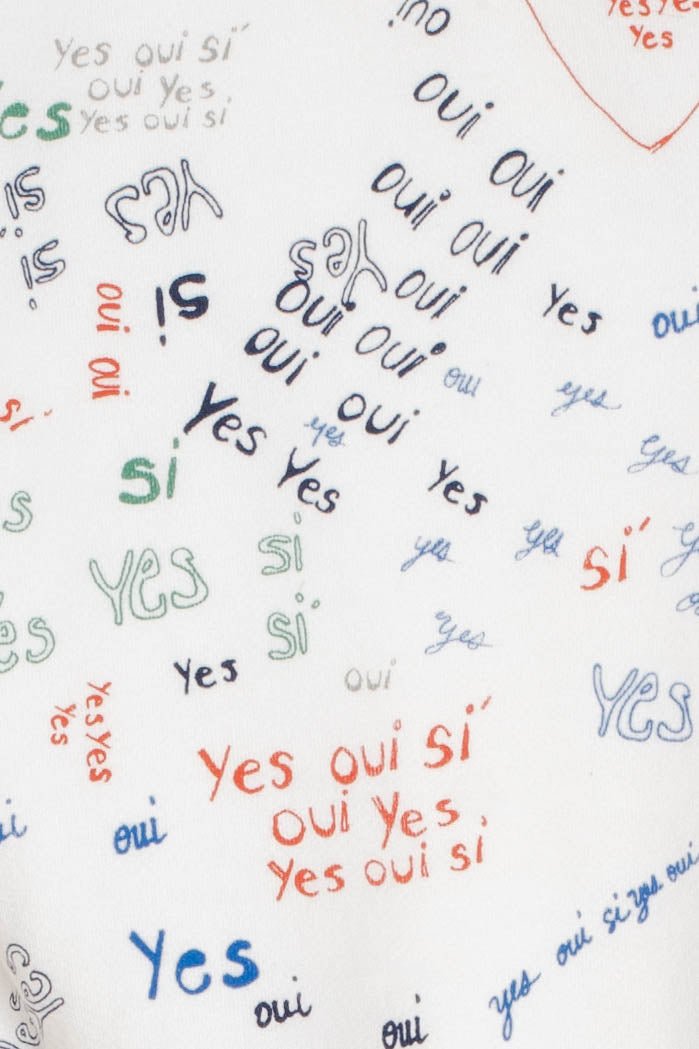 yes yes
yes
oui
yes oui sí
oui yes
yes oui sí
yes
oui
oui
si
yes
oui
oui
si
yes
oui
yes
oui
si
oui
oui
oui
oui
oui
oui
oui
yes
oui
yes
sí
yes
yes
yes
yes
sí
yes
yes
yes
sí
sí
yes
yes
sí
yes
yes
oui
yes
yes yes
yes
yes oui sí
oui yes
yes oui sí
oui
yes oui si yes oui
yes
oui
oui